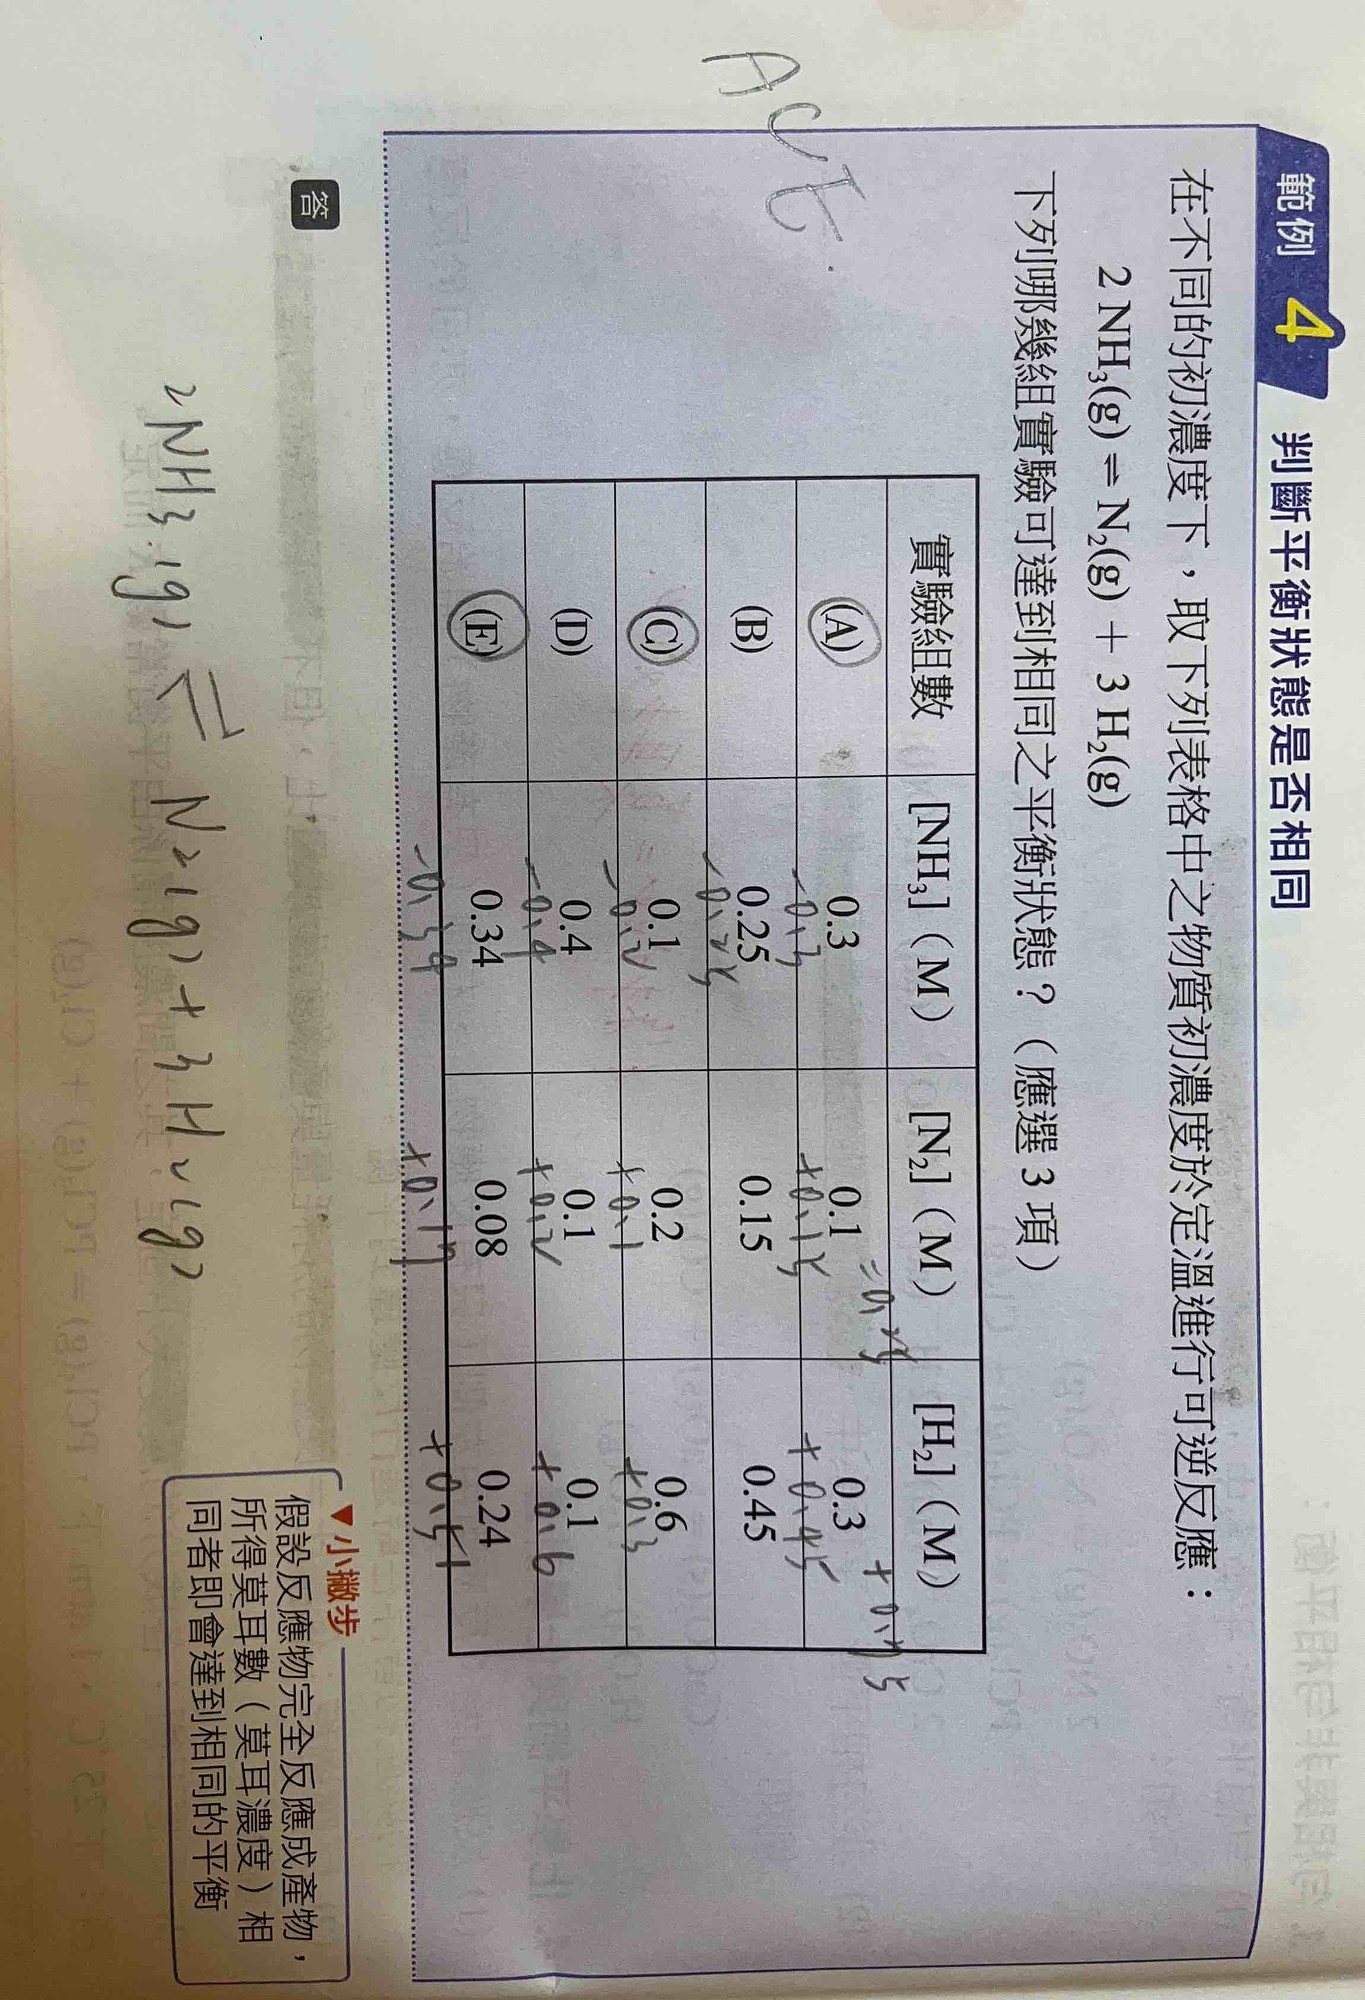 範例 4 判斷平衡狀態是否相同
在不同的初濃度下，取下列表格中之物質初濃度於定溫進行可逆反應：
2 NH₃(g) ⇌ N₂(g) + 3 H₂(g)
下列哪幾組實驗可達到相同之平衡狀態？（應選 3 項）
ACE
實驗組數 [NH₃]（M） [N₂]（M） [H₂]（M）
=0.25 +0.75
(A) 0.3 0.1 0.3
-0.3 +0.15 +0.45
(B) 0.25 0.15 0.45
-0.25
(C) 0.1 0.2 0.6
-0.2 +0.1 +0.3
(D) 0.4 0.1 0.1
-0.4 +0.2 +0.6
(E) 0.34 0.08 0.24
-0.34 +0.17 +0.51
答
▼小撇步
假設反應物完全反應成產物，
所得莫耳數（莫耳濃度）相
同者即會達到相同的平衡
2NH3(g) ⇌ N2(g) + 3H2(g)